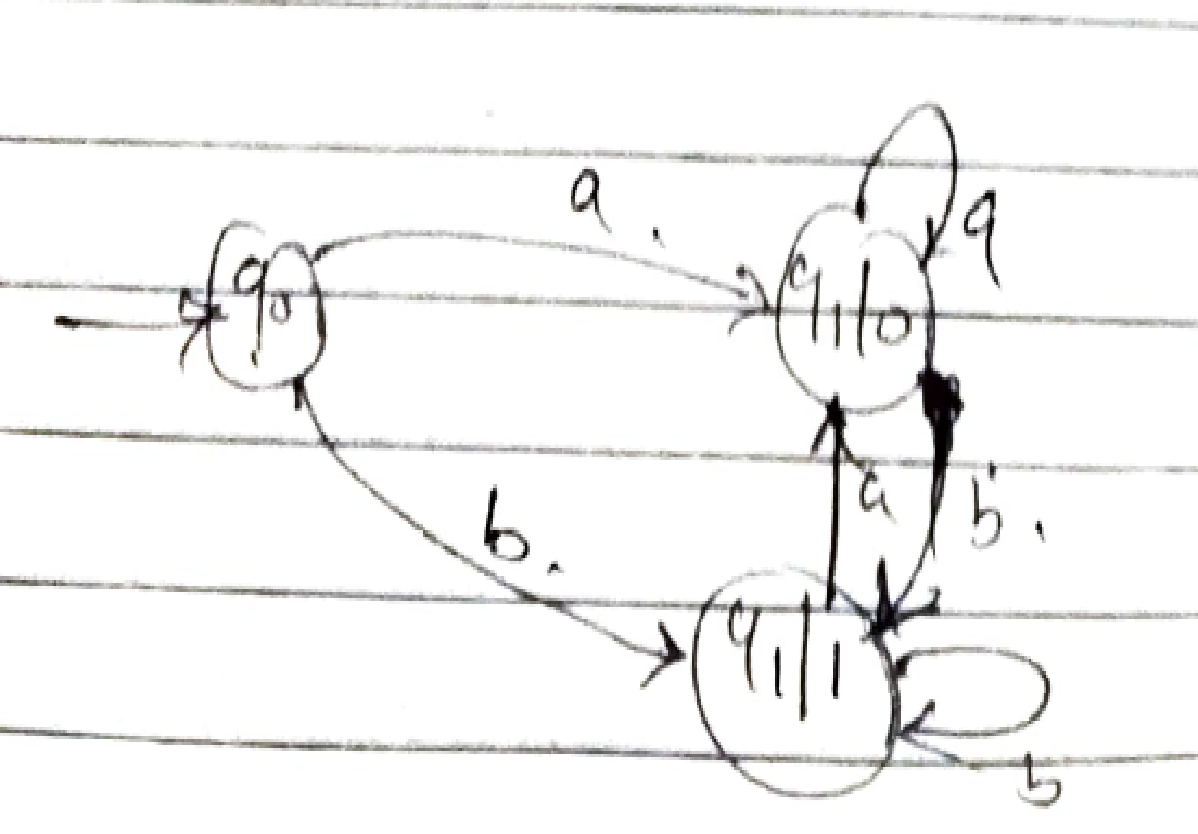 a.
q0
q1/0
a
b.
a
b.
q1/1
b